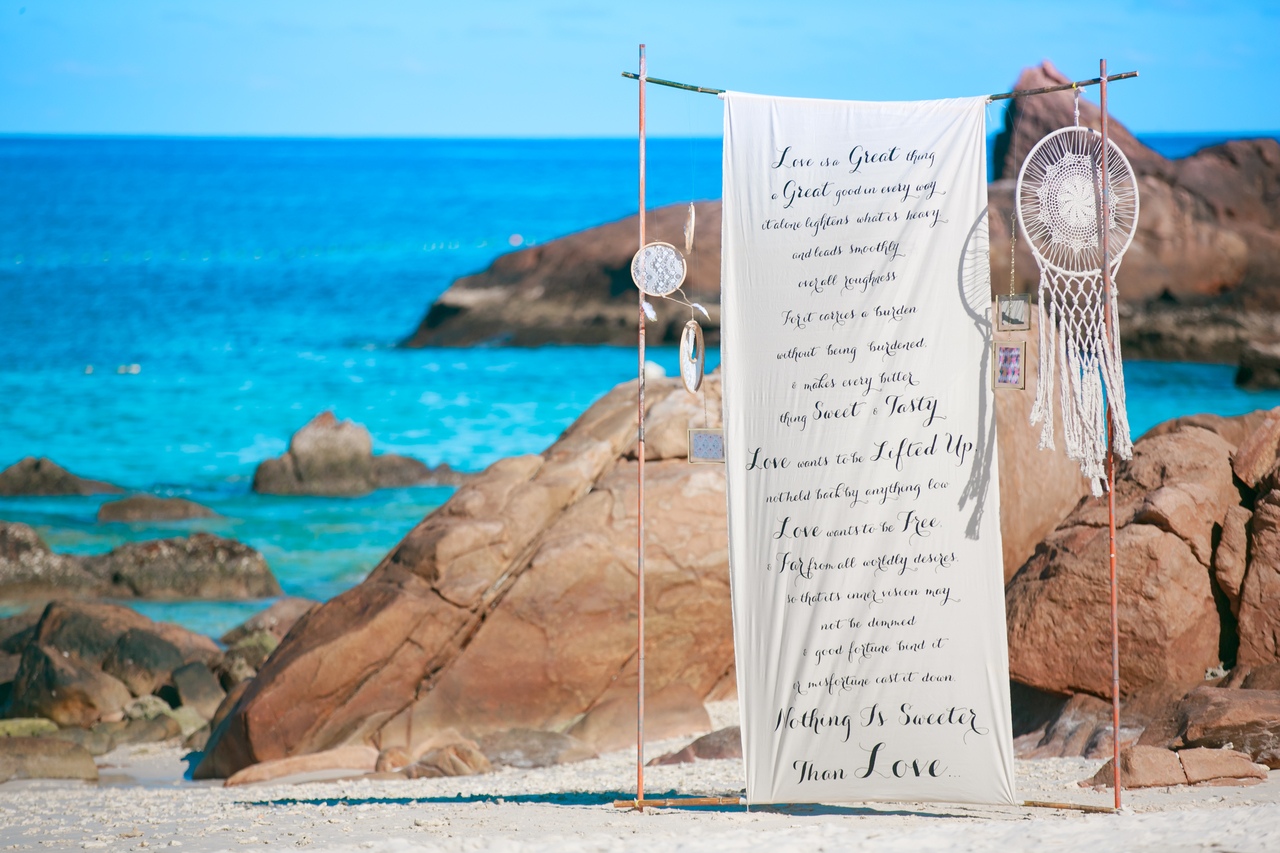 Love is a Great thing
a Great good in every way
it alone lightens what is heavy
and leads smoothly
over all roughness
For it carries a burden
without being burdened.
& makes every bitter
thing Sweet & Tasty
Love wants to be Lifted Up,
not held back by anything low
Love wants to be Free.
& Far from all worldly desires.
so that its inner vision may
not be dimmed
& good fortune bind it
or misfortune cast it down.
Nothing Is Sweeter
Than Love...